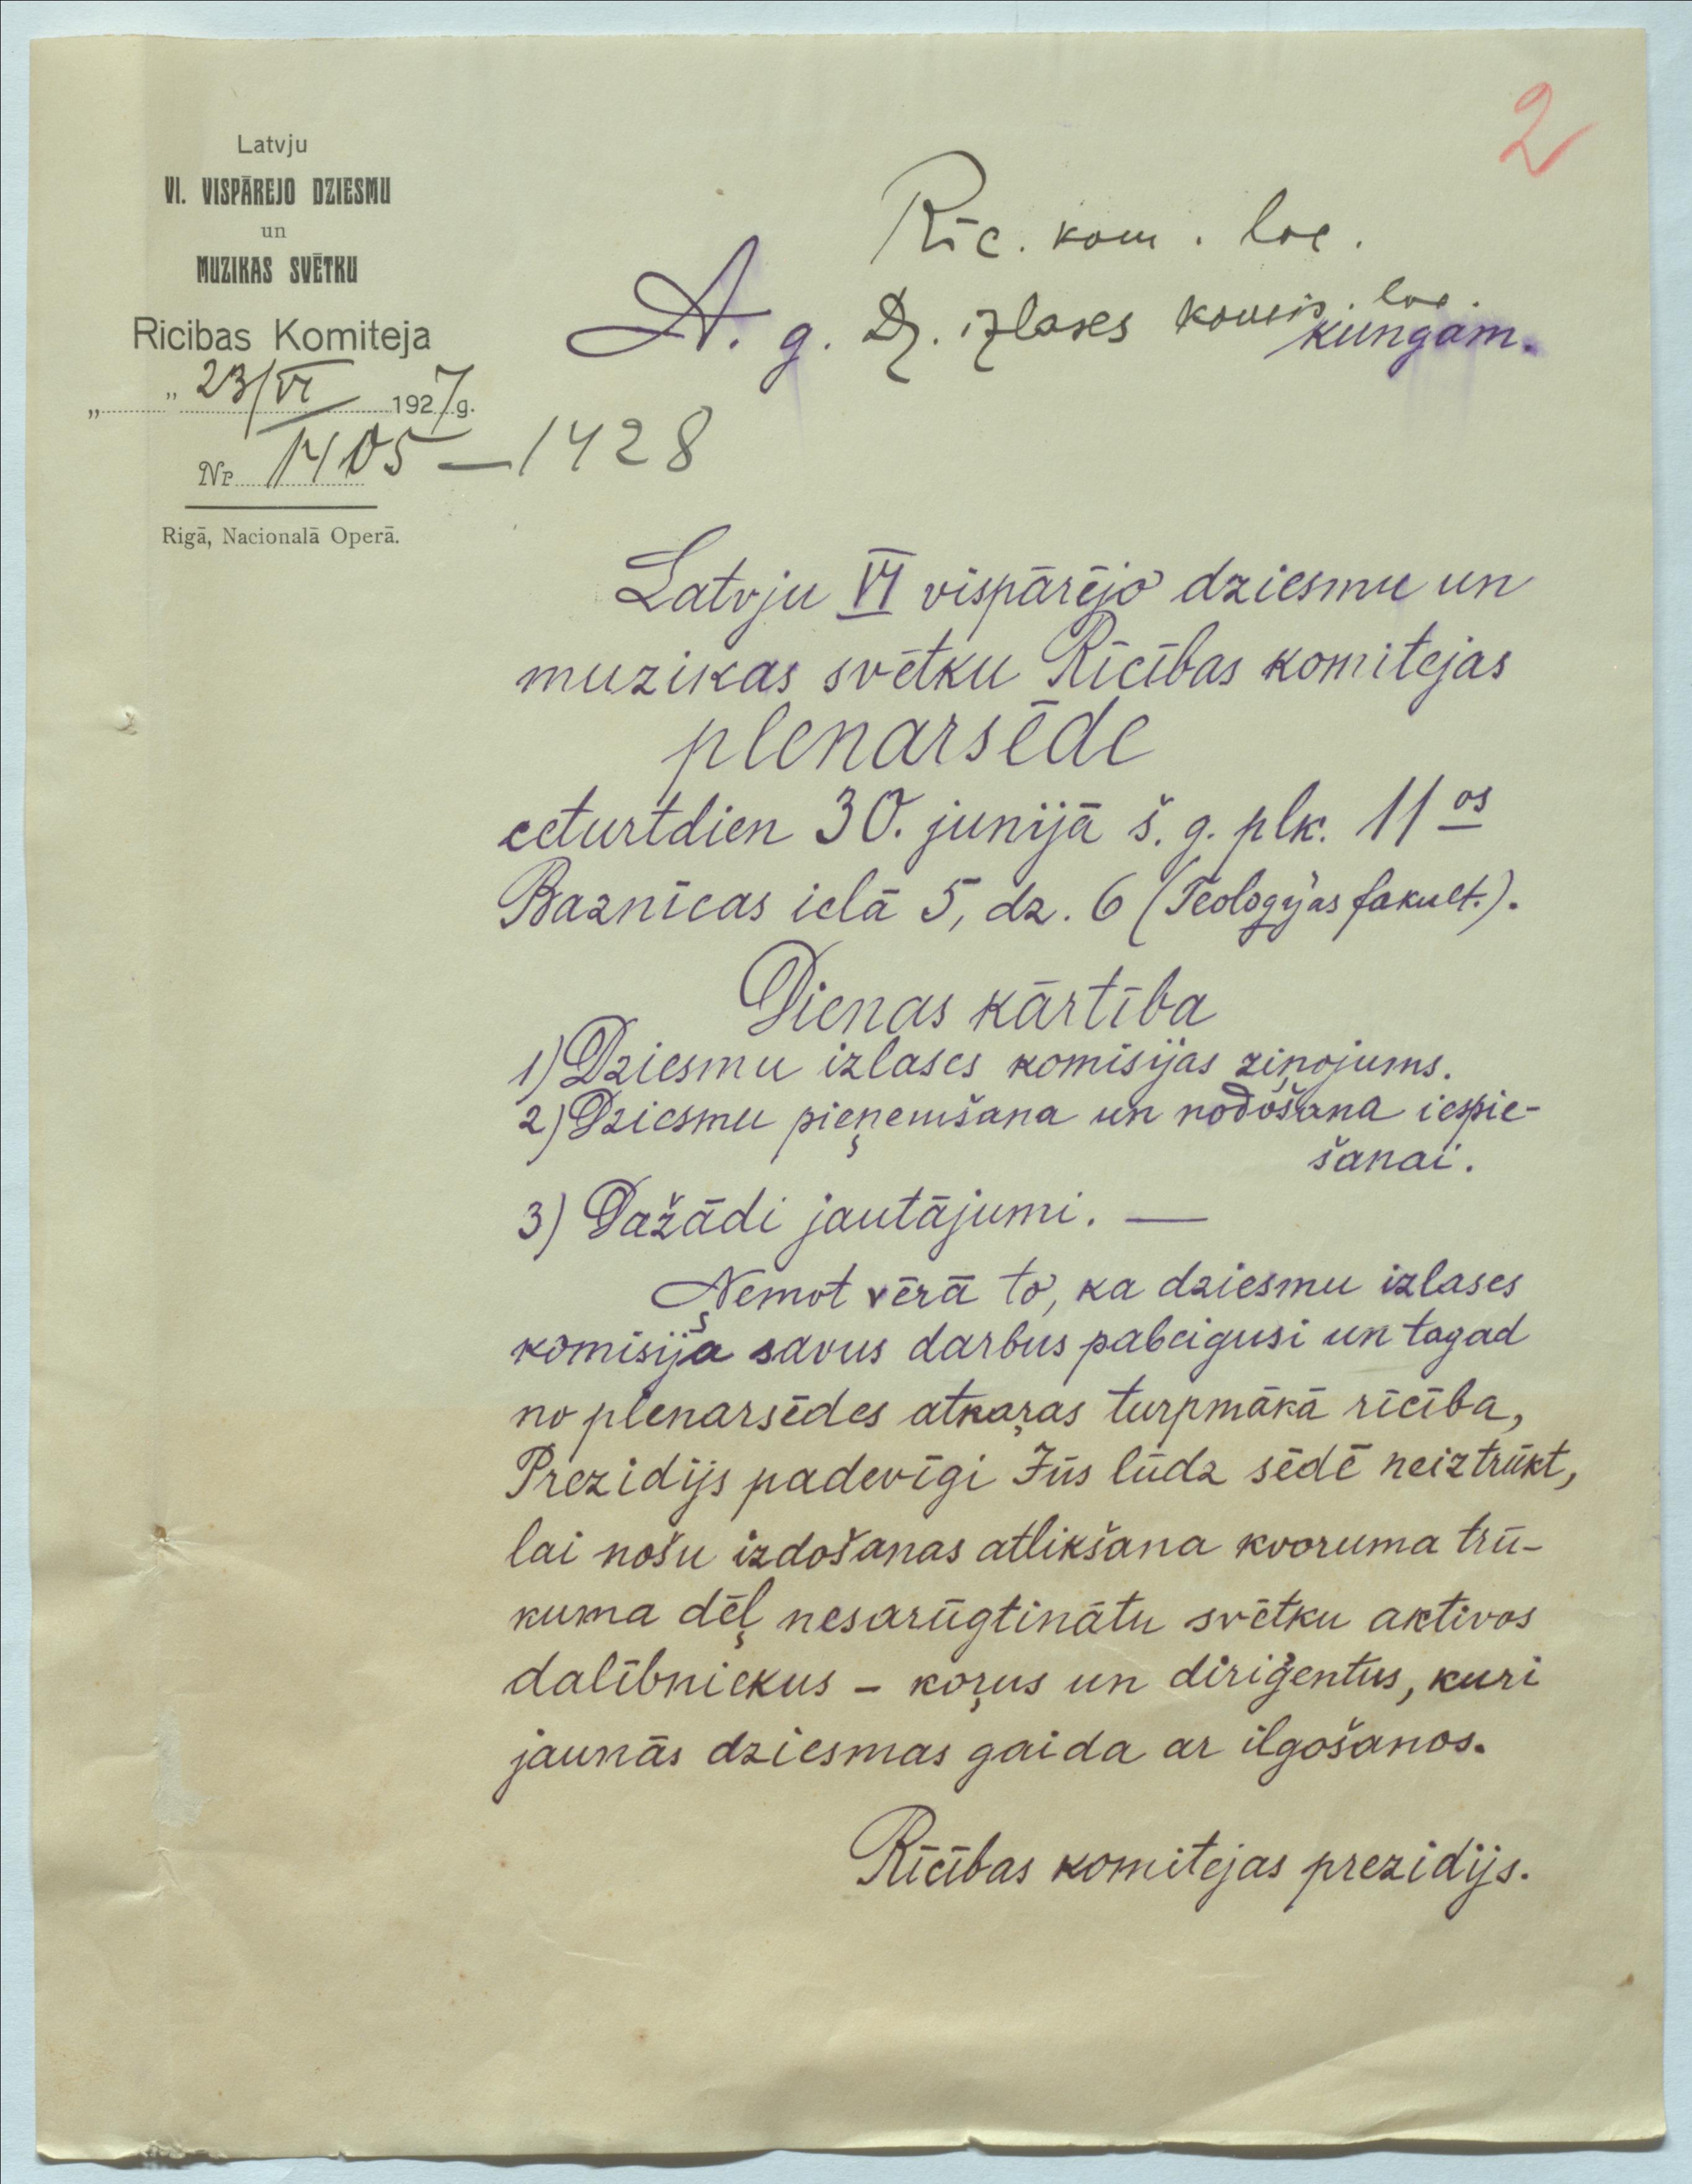 2
Latvju
VI. VISPĀREJO DZIESMU
un
MUZIKAS SVĒTKU
Ricibas Komiteja
„ " 23/VI 1927 g.
Nr 1405 — 1428
Rigā, Nacionalā Operā.
Rīc. kom. loc.
A. g. Dz. izlases komis. loc.
kungam.
Latvju VI vispārējo dziesmu un
muzikas svētku Rīcības komitejas
plenarsēde
ceturtdien 30. junijā š. g. plk. 11os
Baznīcas ielā 5, dz. 6 (Teologijas fakult.).
Dienas kārtība
1) Dziesmu izlases komisijas ziņojums.
2) Dziesmu pieņemšana un nodošana iespie-
šanai.
3) Dažādi jautājumi. —
Ņemot vērā to, ka dziesmu izlases
komisija savus darbus pabeigusi un tagad
no plenarsēdes atkaŗas turpmākā rīcība,
Prezidijs padevīgi Jūs lūdz sēdē neiztrūkt,
lai nošu izdošanas atlikšana kvoruma trū-
kuma dēļ nesarūgtinātu svētku aktivos
dalībniekus – koŗus un diriģentus, kuri
jaunās dziesmas gaida ar ilgošanos.
Rīcības komitejas prezidijs.